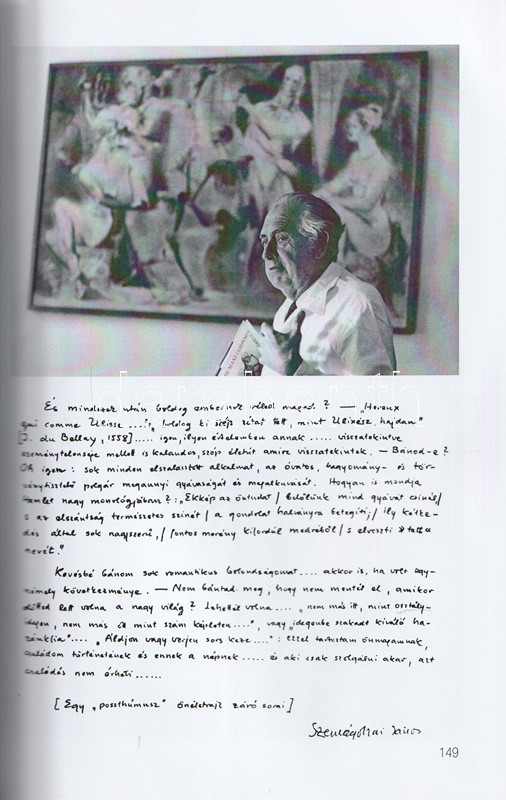 És mindezek után boldog embernek vallod magad? — „Heureux
qui comme Ulisse ....", boldog ki szép utat tett, mint Ulixész hajdan"
[J. du Bellay, 1558] ..... igen, ilyen értelemben annak ..... visszatekintve
eseménytelensége mellett is kalandos, szép életit amire visszatekintek. — Bánod-e?
Oh igen: sok minden elszalasztott alkalmat, az óvatos, hagyomány- és tör-
vénytisztelő polgár megannyi gyávaságát és megalkuvását. Hogyan is mondja
Hamlet nagy monológjában?: „Ekkép az öntudat / belőlünk mind gyávát csinál,/
s az elszántság természetes szinét / a gondolat halványra betegíti;/ ily kéte-
dés által sok nagyszerű,/ fontos merény kifordul medréből / s elveszti »tett«
nevét."
Kevésbé bánom sok romantikus bolondságomat .... akkor is, ha volt egy-
némely következménye. — Nem bántad meg, hogy nem mentél el, amikor
előtted lett volna a nagy világ? Lehettél volna .... „nem más itt, mint osztály-
idegen, nem más ott mint szám képleten ....", vagy idegenbe szakadt kiváló ha-
zánkfia" .... „Áldjon vagy verjen sors keze ....": ezzel tartoztam önmagamnak,
családom történetének és ennek a népnek ..... és aki csak szolgálni akar, azt
csalódás nem érheti ......
[Egy „poszthúmusz" önéletrajz záró sorai]
Szentágothai János
149